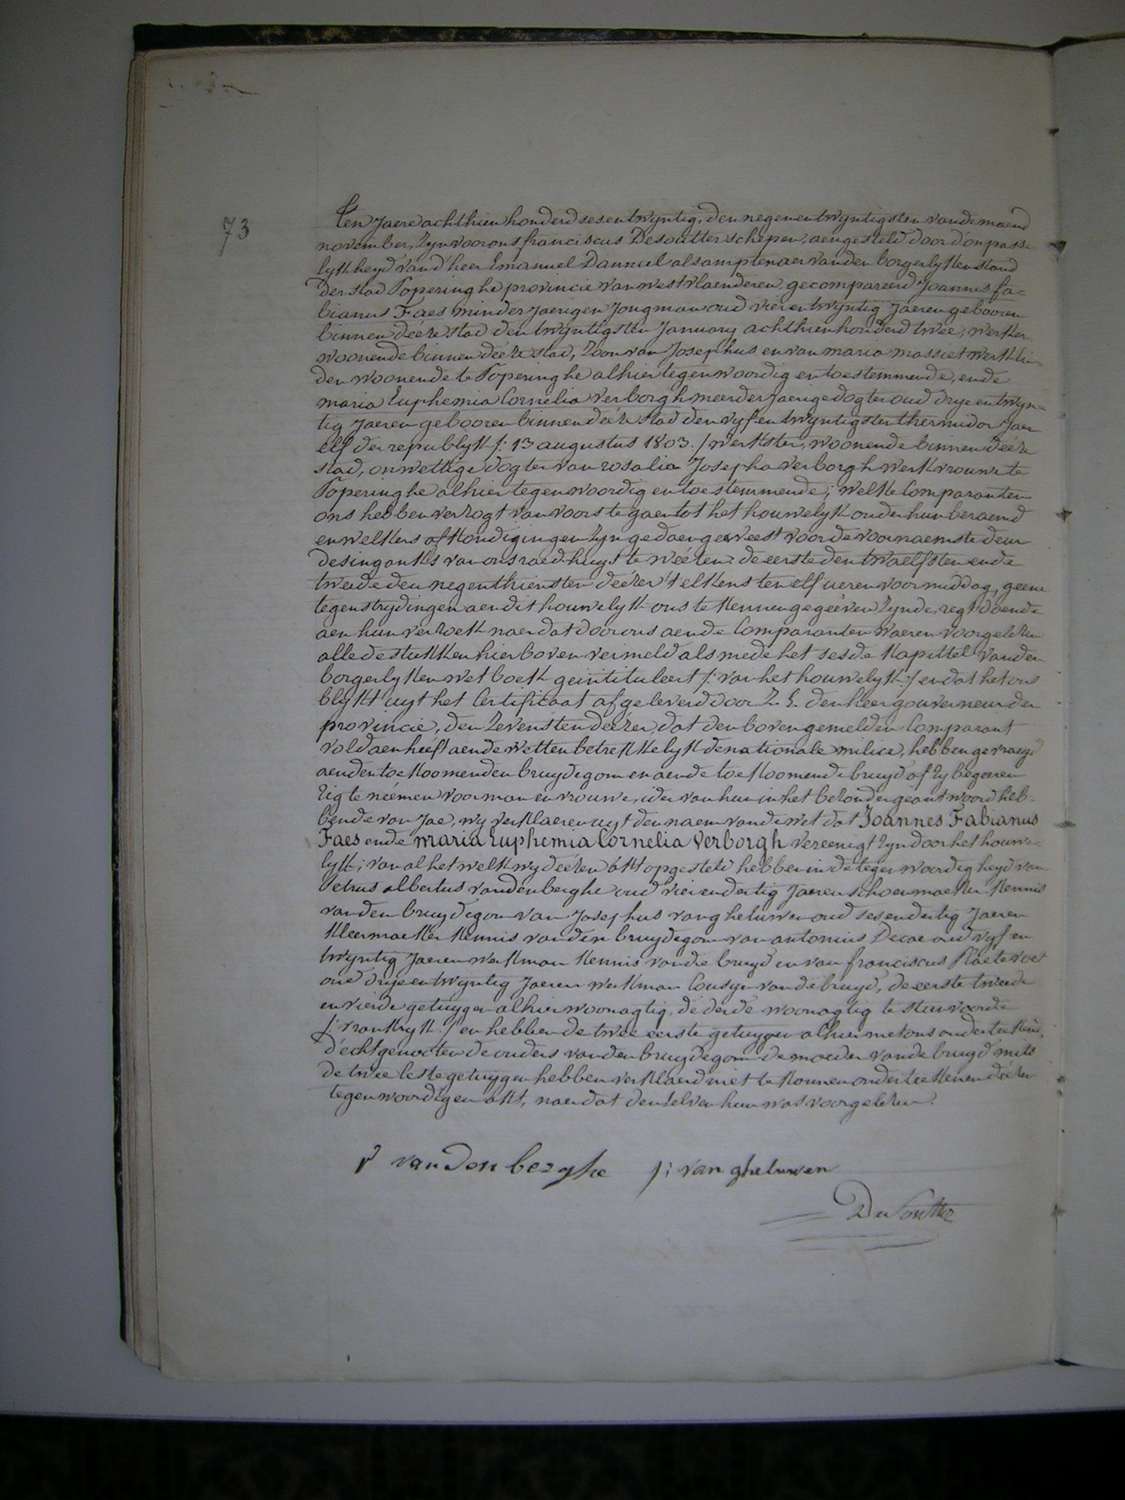 73
Ten Jaere achthien honderd sesentwyntig, den negenentwyntigsten van de maend
november, zyn voor ons franciscus Desoutter schepen, aengesteld door d'onpasse-
lykheyd van d'heer Emanuel Danneel als amptenaer van den borgerlyken stand
der stad Poperinghe provincie van westvlaenderen, gecompareerd Joannes fa-
bianus Faes minder jaerigen Jongman oud vierentwyntig Jaeren gebooren
binnen deéze stad den twyntigsten January achthien honderd twee, werker
woonende binnen deéze stad, Zoon van Josephus en van maria massiet werklie-
den woonende te Poperinghe alhier tegenwoordig en toestemmende, ende
maria Euphemia Cornelia verborgh meerder Jaerige dogter oud drye en twyn-
tig Jaeren gebooren binnen deéze stad den vyfentwyntigsten thermidor Jaer
elf der republyk /: 13 augustus 1803 :/ werkster, woonende binnen deéze
stad, onwettige dogter van rosalia Josepha verborgh werkvrouwe te
Poperinghe alhier tegenwoordig en toestemmende; welke Comparanten
ons hebben verzogt van voors te gaen tot het houwelyk onder hun beraemd
en welkers afkondigingen zyn gedaen geweest voor de voornaemste deur
des inganks van ons raedhuys te weeten: de eerste den twaelfsten ende
tweede den negenthiensten deézer t'elkens ten elf ueren voormiddag, geene
tegenstrydingen aen dit houwelyk ons te kennen gegeéven zynde, regt doende
aen hun verzoek naer dat door ons aen de Comparanten waeren voorgeleézen
alle de stukken hier boven vermeld als mede het sesde kapittel van den
borgerlyken wetboek geintituleert /: van het houwelyk :/ en dat het ons
blykt uyt het Certificaat afgeleverd door Z. E. den heer gouverneur der
provincie, den zevensten deézer, dat den bovengemelden Comparant
voldaen heeft aen de wetten betrekkelyk de nationale milice, hebben gevraegd
aen den toekoomenden bruydegom en aen de toekoomende bruyd of zy begeeren
zig te neémen voor man en vrouwe, ider van hun in het bezonder geantwoord heb-
bende van Jae, wy verklaeren uyt den naem van de wet dat Joannes Fabianus
Faes ende maria Euphemia Cornelia Verborgh vereenigt zyn door het houwe-
lyk; van al het welk wy deézen akt opgesteld hebben in de tegenwoordigheyd van
Petrus albertus vandenberghe oud vierendertig Jaeren schoenmaeker kennis
van den bruydegom van Josephus vangheluwen oud sesendertig Jaeren
kleermaeker kennis van den bruydegom van antonius Decae oud vyf en
twyntig Jaeren werkman kennis van de bruyd en van franciscus Kaelevoet
oud drye en twyntig Jaeren werkman Cousyn van de bruyd, de eerste tweede
en vierde getuygen alhier woonagtig, de derde woonagtig te steenvoorde
/: vrankryk :/ en hebben de twee eerste getuygen alhier met ons onderteekend,
d'echtgenooten de ouders van den bruydegom de moeder van de bruyd mits
de twee leste getuygen hebben verklaerd niet te konnen onderteekenen deézen
tegenwoordigen akt, naer dat denzelven hun was voorgeleézen.
P vandenberghe J: van gheluwen
Desoutter